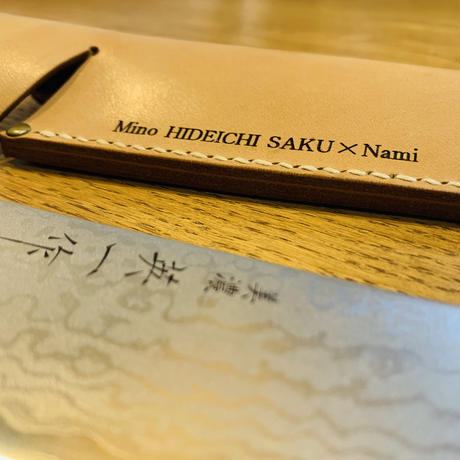 Mino HIDEICHI SAKU×Nami
美濃
英一作